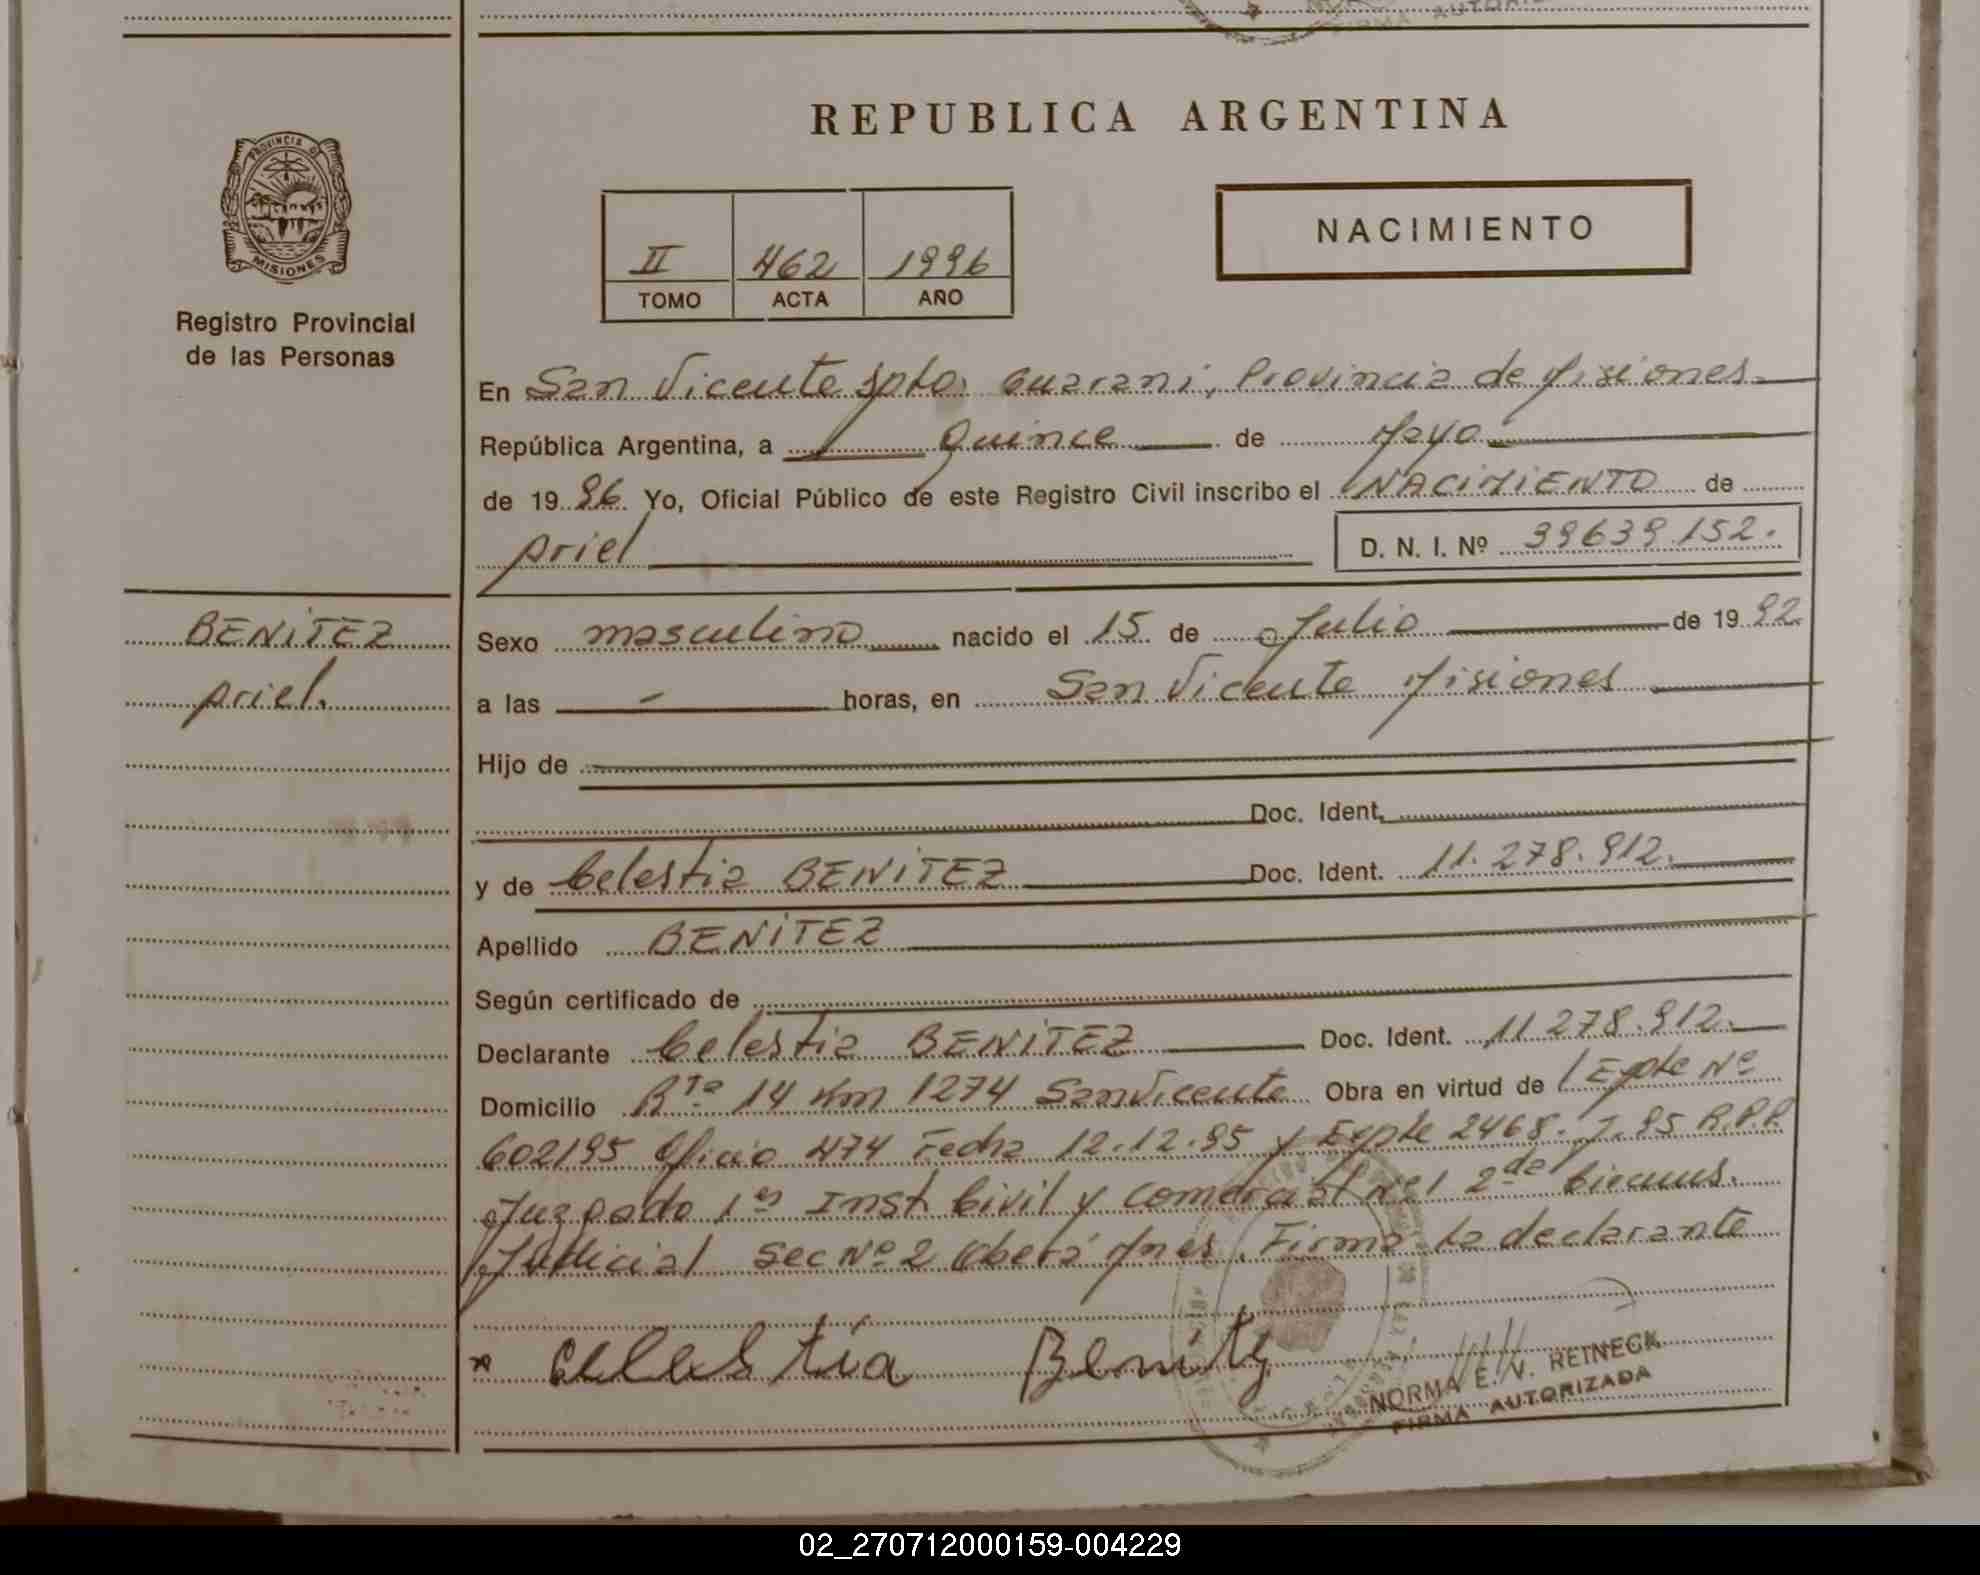 FIRMA AUTORIZ
REPUBLICA ARGENTINA
PROVINCIA DE
MISIONES
Registro Provincial
de las Personas
II 462 1996
TOMO ACTA AÑO
NACIMIENTO
En San Vicente Dpto. Guaraní, Provincia de Misiones.
República Argentina, a Quince de Mayo
de 19 96 Yo, Oficial Público de este Registro Civil inscribo el NACIMIENTO de
Ariel D. N. I. Nº 39639.152.
BENITEZ
Ariel.
Sexo masculino nacido el 15 de Julio de 19 92.
a las - horas, en San Vicente Misiones
Hijo de
Doc. Ident.
y de Celestia BENITEZ Doc. Ident. 11.278.912.
Apellido BENITEZ
Según certificado de
Declarante Celestia BENITEZ Doc. Ident. 11278.912.
Domicilio Rta 14 Km 1274 San Vicente Obra en virtud de Expte Nº
602195 Oficio 474 Fecha 12.12.95 y Expte 2468. J. 95 R.P.P.
Juzgado 1es Inst. Civil y Comercial Nº1 2da Circuns.
Judicial Sec Nº 2 Oberá Mnes. Firma la declarante
Celestia Benitz
NORMA E. V. REINECK
FIRMA AUTORIZADA
02_270712000159-004229